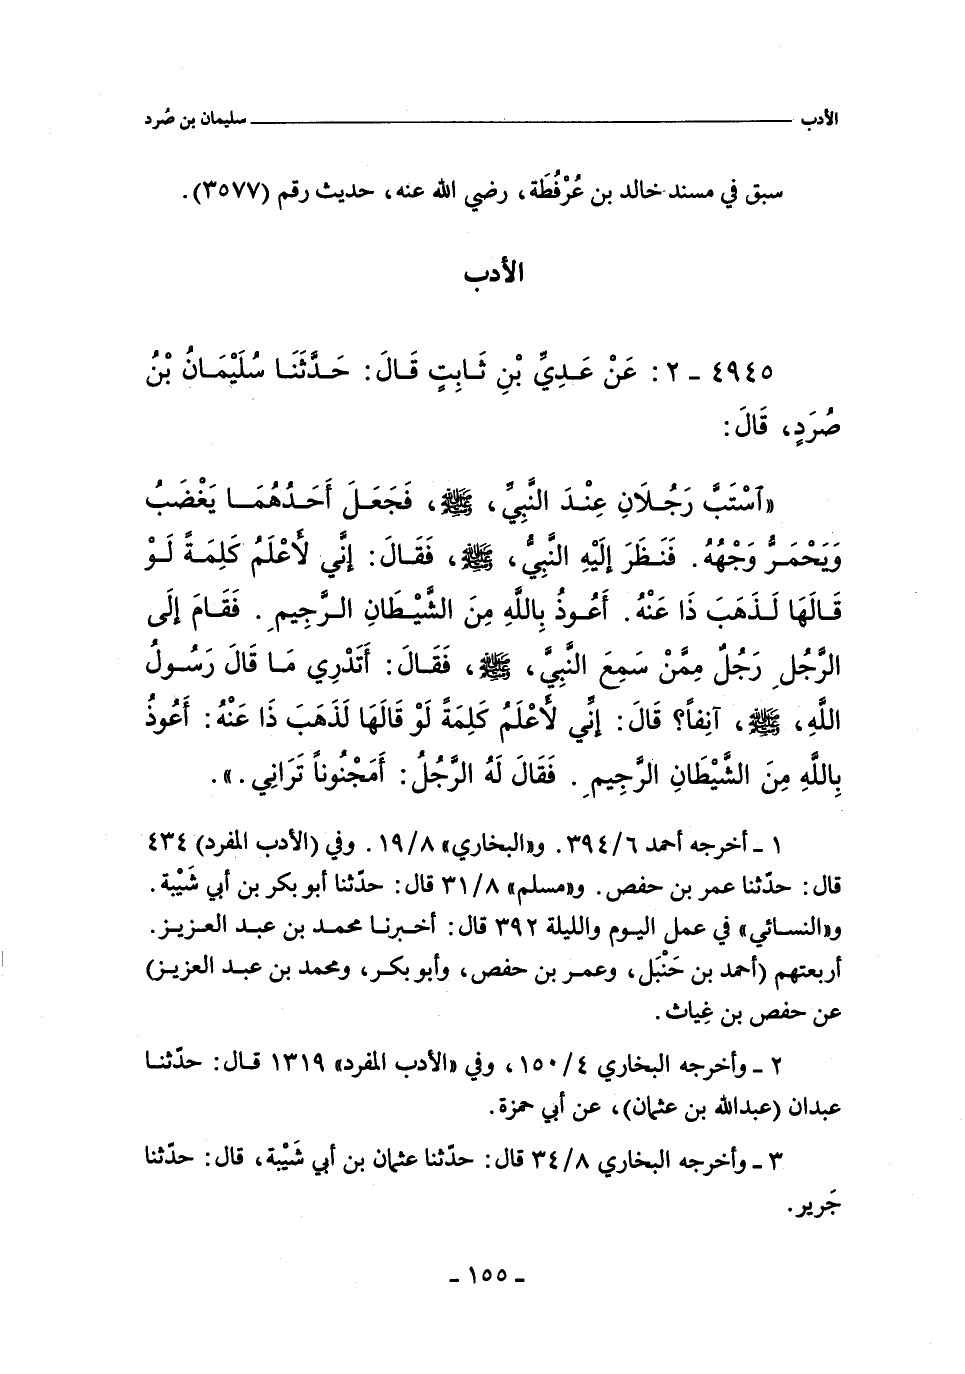 الأدب ــــــــــــــــــــــــ سليمان بن صُرد
سبق في مسند خالد بن عُرْفُطَة، رضي الله عنه، حديث رقم (٣٥٧٧).
الأدب
٤٩٤٥ ـ ٢ : عَنْ عَدِيِّ بْنِ ثَابِتٍ قَالَ: حَدَّثَنَا سُلَيْمَانُ بْنُ
صُرَدٍ، قَالَ:
«ٱسْتَبَّ رَجُلَانِ عِنْدَ النَّبِيِّ، ﷺ، فَجَعَلَ أَحَدُهُمَا يَغْضَبُ
وَيَحْمَرُّ وَجْهُهُ. فَنَظَرَ إِلَيْهِ النَّبِيُّ، ﷺ، فَقَالَ: إِنِّي لَأَعْلَمُ كَلِمَةً لَوْ
قَالَهَا لَذَهَبَ ذَا عَنْهُ. أَعُوذُ بِاللَّهِ مِنَ الشَّيْطَانِ الرَّجِيمِ. فَقَامَ إِلَى
الرَّجُلِ رَجُلٌ مِمَّنْ سَمِعَ النَّبِيَّ، ﷺ، فَقَالَ: أَتَدْرِي مَا قَالَ رَسُولُ
اللَّهِ، ﷺ، آنِفاً؟ قَالَ: إِنِّي لَأَعْلَمُ كَلِمَةً لَوْ قَالَهَا لَذَهَبَ ذَا عَنْهُ: أَعُوذُ
بِاللَّهِ مِنَ الشَّيْطَانِ الرَّجِيمِ. فَقَالَ لَهُ الرَّجُلُ: أَمَجْنُوناً تَرَانِي.».
١ ـ أخرجه أحمد ٣٩٤/٦. و«البخاري» ١٩/٨. وفي (الأدب المفرد) ٤٣٤
قال: حدّثنا عمر بن حفص. و«مسلم» ٣١/٨ قال: حدّثنا أبو بكر بن أبي شَيْبة.
و«النسائي» في عمل اليوم والليلة ٣٩٢ قال: أخبرنا محمد بن عبد العزيز.
أربعتهم (أحمد بن حَنْبَل، وعمر بن حفص، وأبو بكر، ومحمد بن عبد العزيز)
عن حفص بن غِياث.
٢ ـ وأخرجه البخاري ١٥٠/٤، وفي «الأدب المفرد» ١٣١٩ قال: حدّثنا
عبدان (عبدالله بن عثمان)، عن أبي حمزة.
٣ ـ وأخرجه البخاري ٣٤/٨ قال: حدّثنا عثمان بن أبي شَيْبة، قال: حدّثنا
جَرير.
ـ ١٥٥ ـ